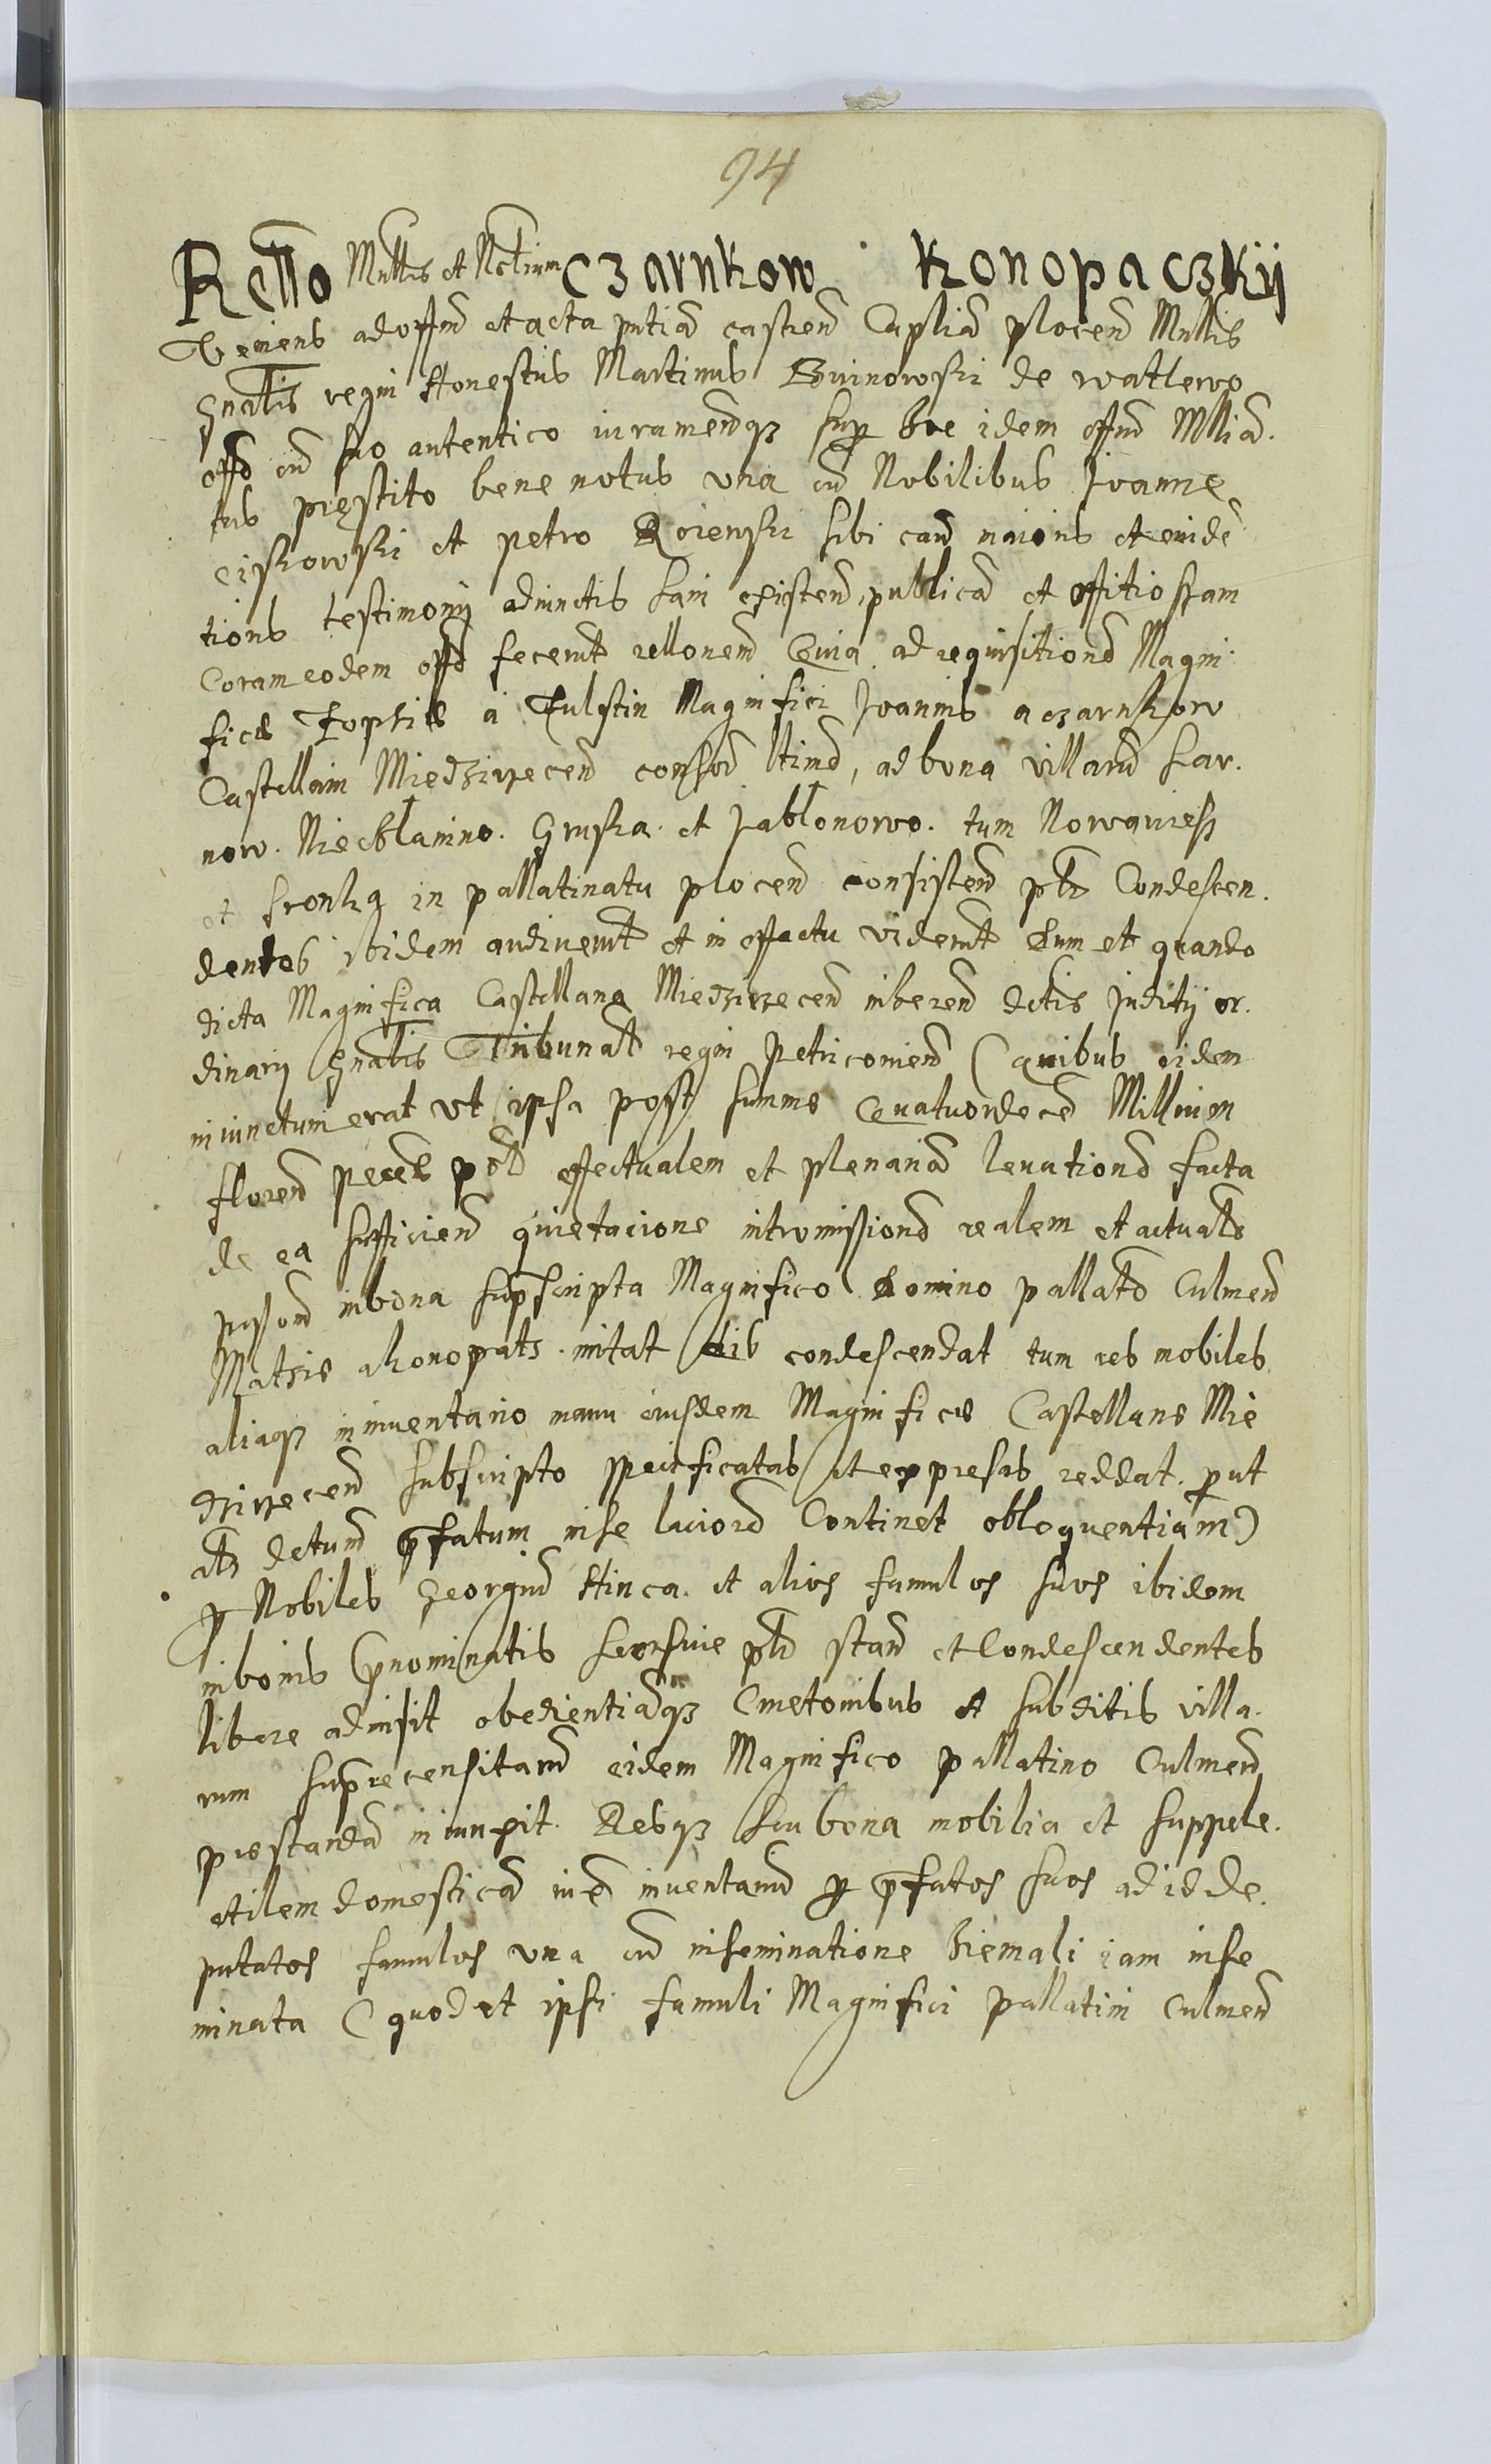 94
Rello Mnllis et Nobilium Czarnkow Konopaczkij
Veniens ad offm et acta pntia castren Capliā plocen Mnllis
Gnalis regni Honestus Martinus de watlewo
offo cū suo autentico iuramentoqz sup hoc idem offm Mlliā.
tus pręstito bene notus vna cū Nobilibus Joanne
ciskowski et petro sibi caū maioris et euidē
tioris testimonij adiunctis sani existen, publicā et offitiosam
Coram eodem offo fecerūt rellonem Quia ad requisitionē Magni
ficæ Zophiæ a Tulstin Magnifici Joannis a czarnkow
Castellani Miedzirzecen consor ltimæ, ad bona villarū Kar.
now. Niecklanino. Gruska. et Jablonowo. tum Nowawiess
et sronka in pallatinatu plocen consisten ptr Condescen.
dentes ibidem audiuerūt et in effectu viderūt Dum et quando
dicta Magnifica Castellana Miedzirzecen inheren dctis Juditij or.
dinarij Gnalis Tribunal regni Petricouien (quibus eidem
iniunctum erat vt ipsa post summe Quatuordecē Millium
floren pecun pol effectualem et plenariā leuationē facta
de ea sufficien quietacione intromissionē realem et actualē
in bona supscripta Magnifico Domino pallato Culmen
Mathie a Konopath. condescendat tum res mobiles
aliasqz in inuentario manu eiusdem Magnificæ Castellane Mie
dzirzecen subscripto specificatas et expressas reddat. put
dctum pfatum in se laciorē Continet obloquentiam)
p Nobiles Georgium Hinca. et alios famulos suos ibidem
in bonis pnominatis seorsiue ptr stan et Condescendentes
libere admisit obedientiāqz Cmetonibus et subditis villa.
rum suprecensitarū eidem Magnifico pallatino Culmen
prestandā iniunxit. Resqz seu bona mobilia et suppele.
ctilem domesticā iuxta inuentariū p pfatos suos ad id de.
putatos famulos vna cū inseminatione hiemali iam inse
minata (quod et ipsi famuli Magnifici Pallatini Culmen